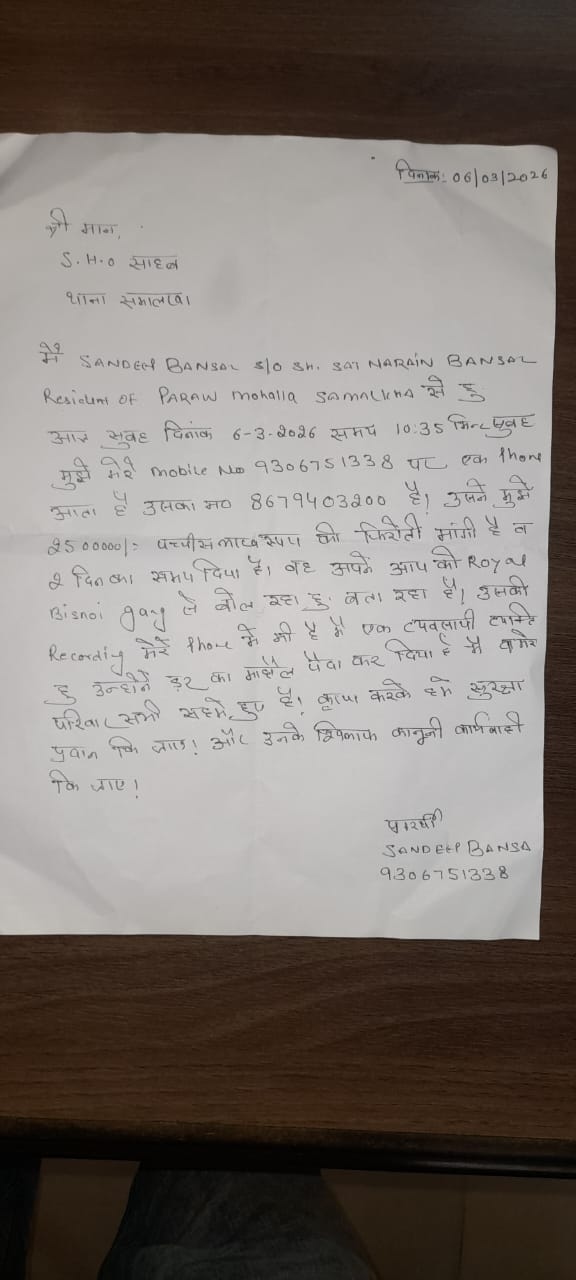 दिनांक: 06/03/2026
श्री मान,
S.H.O साहब
थाना समालखा
मैं SANDEEP BANSAL S/O SH. SAT NARAIN BANSAL
Resident OF PARAW Mohalla SAMALKHA से हु
आज सुबह दिनांक 6-3-2026 समय 10:35 मिनट सुबह
मुझे मेरे mobile No 9306751338 पर एक Phone
आता है उसका न० 8679403200 है। उसने मुझे
2500000/- पच्चीस लाख रुपए की फिरोती मांगी है व
2 दिन का समय दिया है। वह अपने आप को Royal
Bisnoi gang से बोल रहा हु बता रहा है। उसकी
Recording मेरे Phone में भी है मै एक व्यवसायी व्यक्ति
हु उन्होने डर का माहौल पैदा कर दिया है मै व मेरा
परिवार सभी सहमे हुए है। कृपा करके हमे सुरक्षा
प्रदान कि जाए। और उनके खिलाफ कानूनी कार्यवाही
कि जाए।
प्रार्थी
SANDEEP BANSA
9306751338